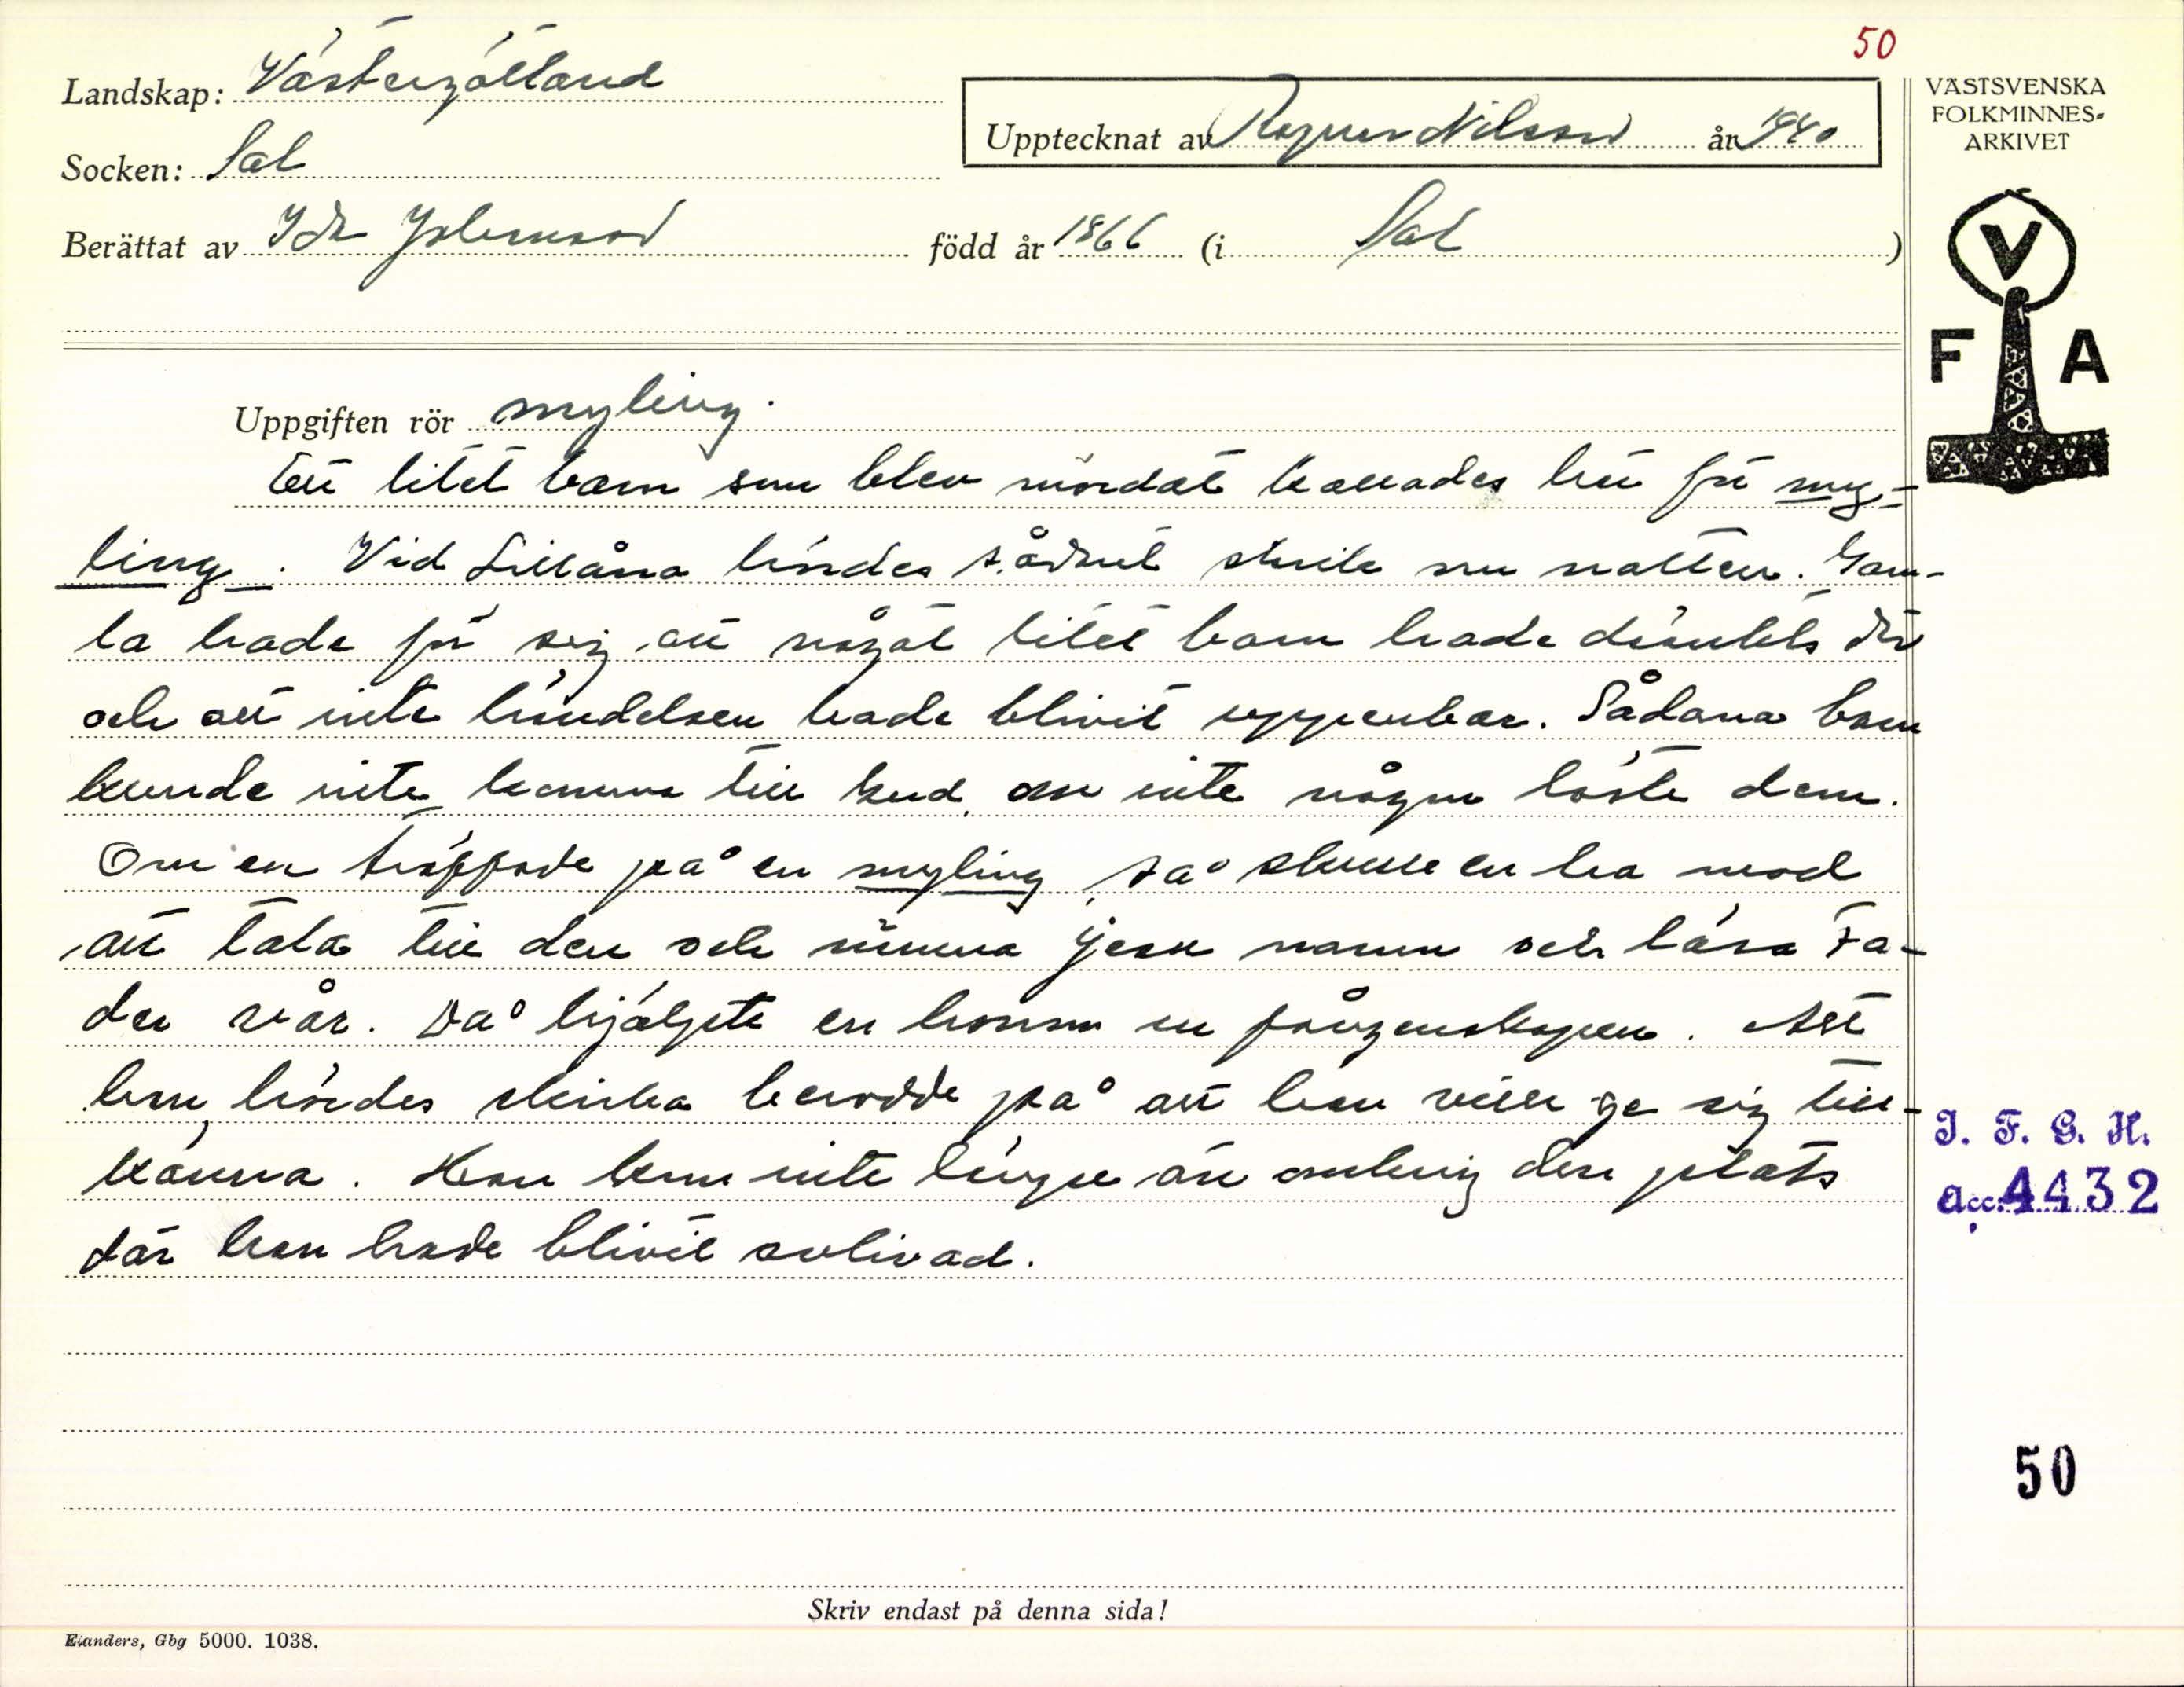 50
Landskap: Västergötland
VÄSTSVENSKA
FOLKMINNES-
ARKIVET
Upptecknat av Ragnar Nilsson år 1940
Socken: Sal
Berättat av Ida Johansson född år 1866 (i Sal)
V
F A
Uppgiften rör myling.
Ett litet barn som blev mördat kallades här för my-
ling. Vid Lillåna hördes sådant skrik om natten. Gam-
la hade för sig att något litet barn hade dränkts där
och att inte händelsen hade blivit uppenbar. Sådana barn
kunde inte komma till Gud, om inte någon löste dem.
Om en träffade på en myling, så skulle en ha mod
att tala till den och nämna Jesu namn och läsa Fa-
der vår. Då hjälpte en honom ur fångenskapen. Att
han hördes skrika berodde på att han ville ge sig till-
känna. Han kom inte längre än omkring den plats
där han hade blivit avlivad.
I. F. G. H.
acc. 4432
50
Skriv endast på denna sida!
Elanders, Gbg 5000. 1038.